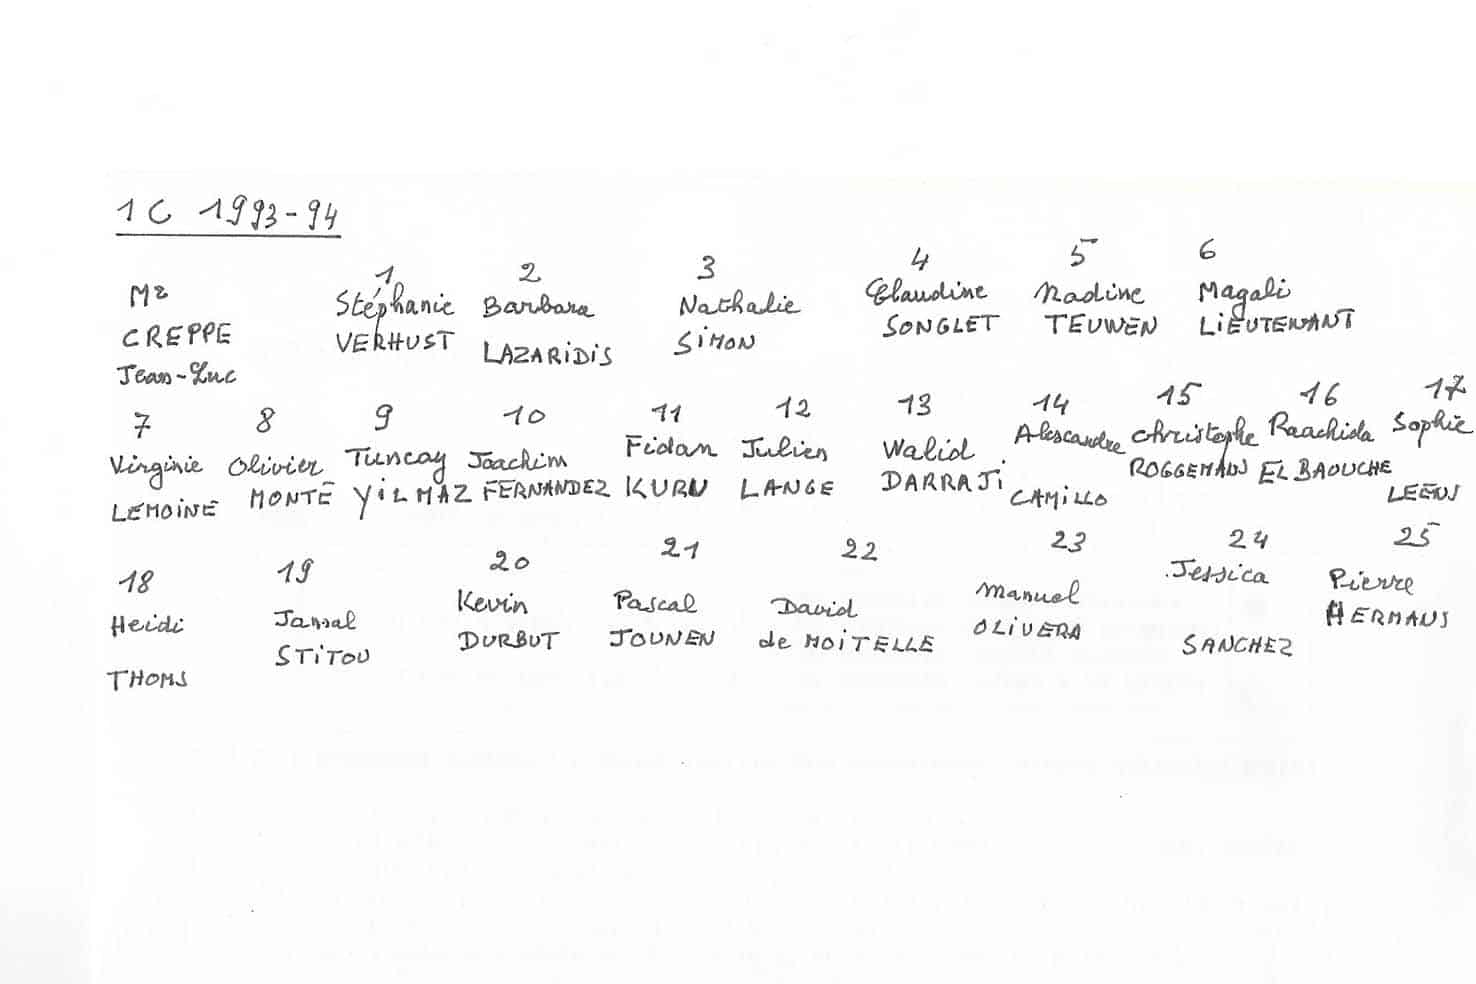 1C 1993-94
1 2 3 4 5 6
Mr Stéphanie Barbara Nathalie Claudine Nadine Magali
CREPPE VERHUST LAZARIDIS SIMON SONGLET TEUWEN LIEUTENANT
Jean-Luc
7 8 9 10 11 12 13 14 15 16 17
Virginie Olivier Tuncay Joachim Fidan Julien Walid Alescandre christophe Raachida Sophie
LEMOINE MONTÉ YILMAZ FERNANDEZ KURU LANGE DARRAJI CAMILLO ROGGEMANS EL BAOUCHE LEENS
18 19 20 21 22 23 24 25
Heidi Jamal Kevin Pascal David Manuel Jessica Pierre
THOMS STITOU DURBUT JOUNEN de MOITELLE OLIVERA SANCHEZ HERMANS